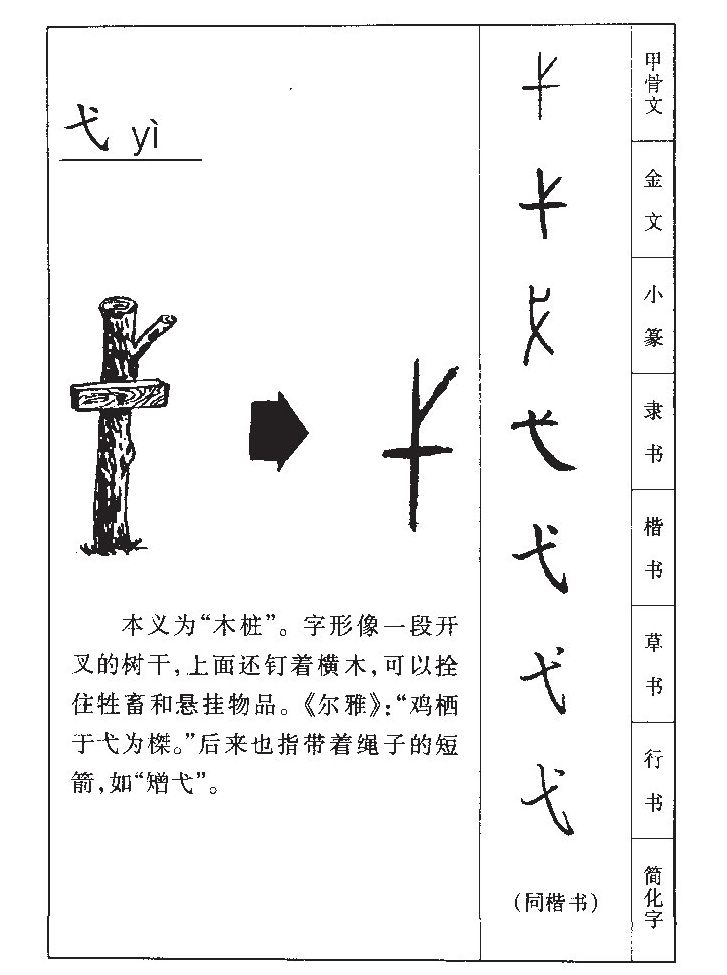 弋 yì
本义为“木桩”。字形像一段开
叉的树干，上面还钉着横木，可以拴
住牲畜和悬挂物品。《尔雅》：“鸡栖
于弋为榤。”后来也指带着绳子的短
箭，如“矰弋”。
甲骨文
金文
小篆
隶书
弋
楷书
弋
草书
弋
行书
弋
简化字
（同楷书）